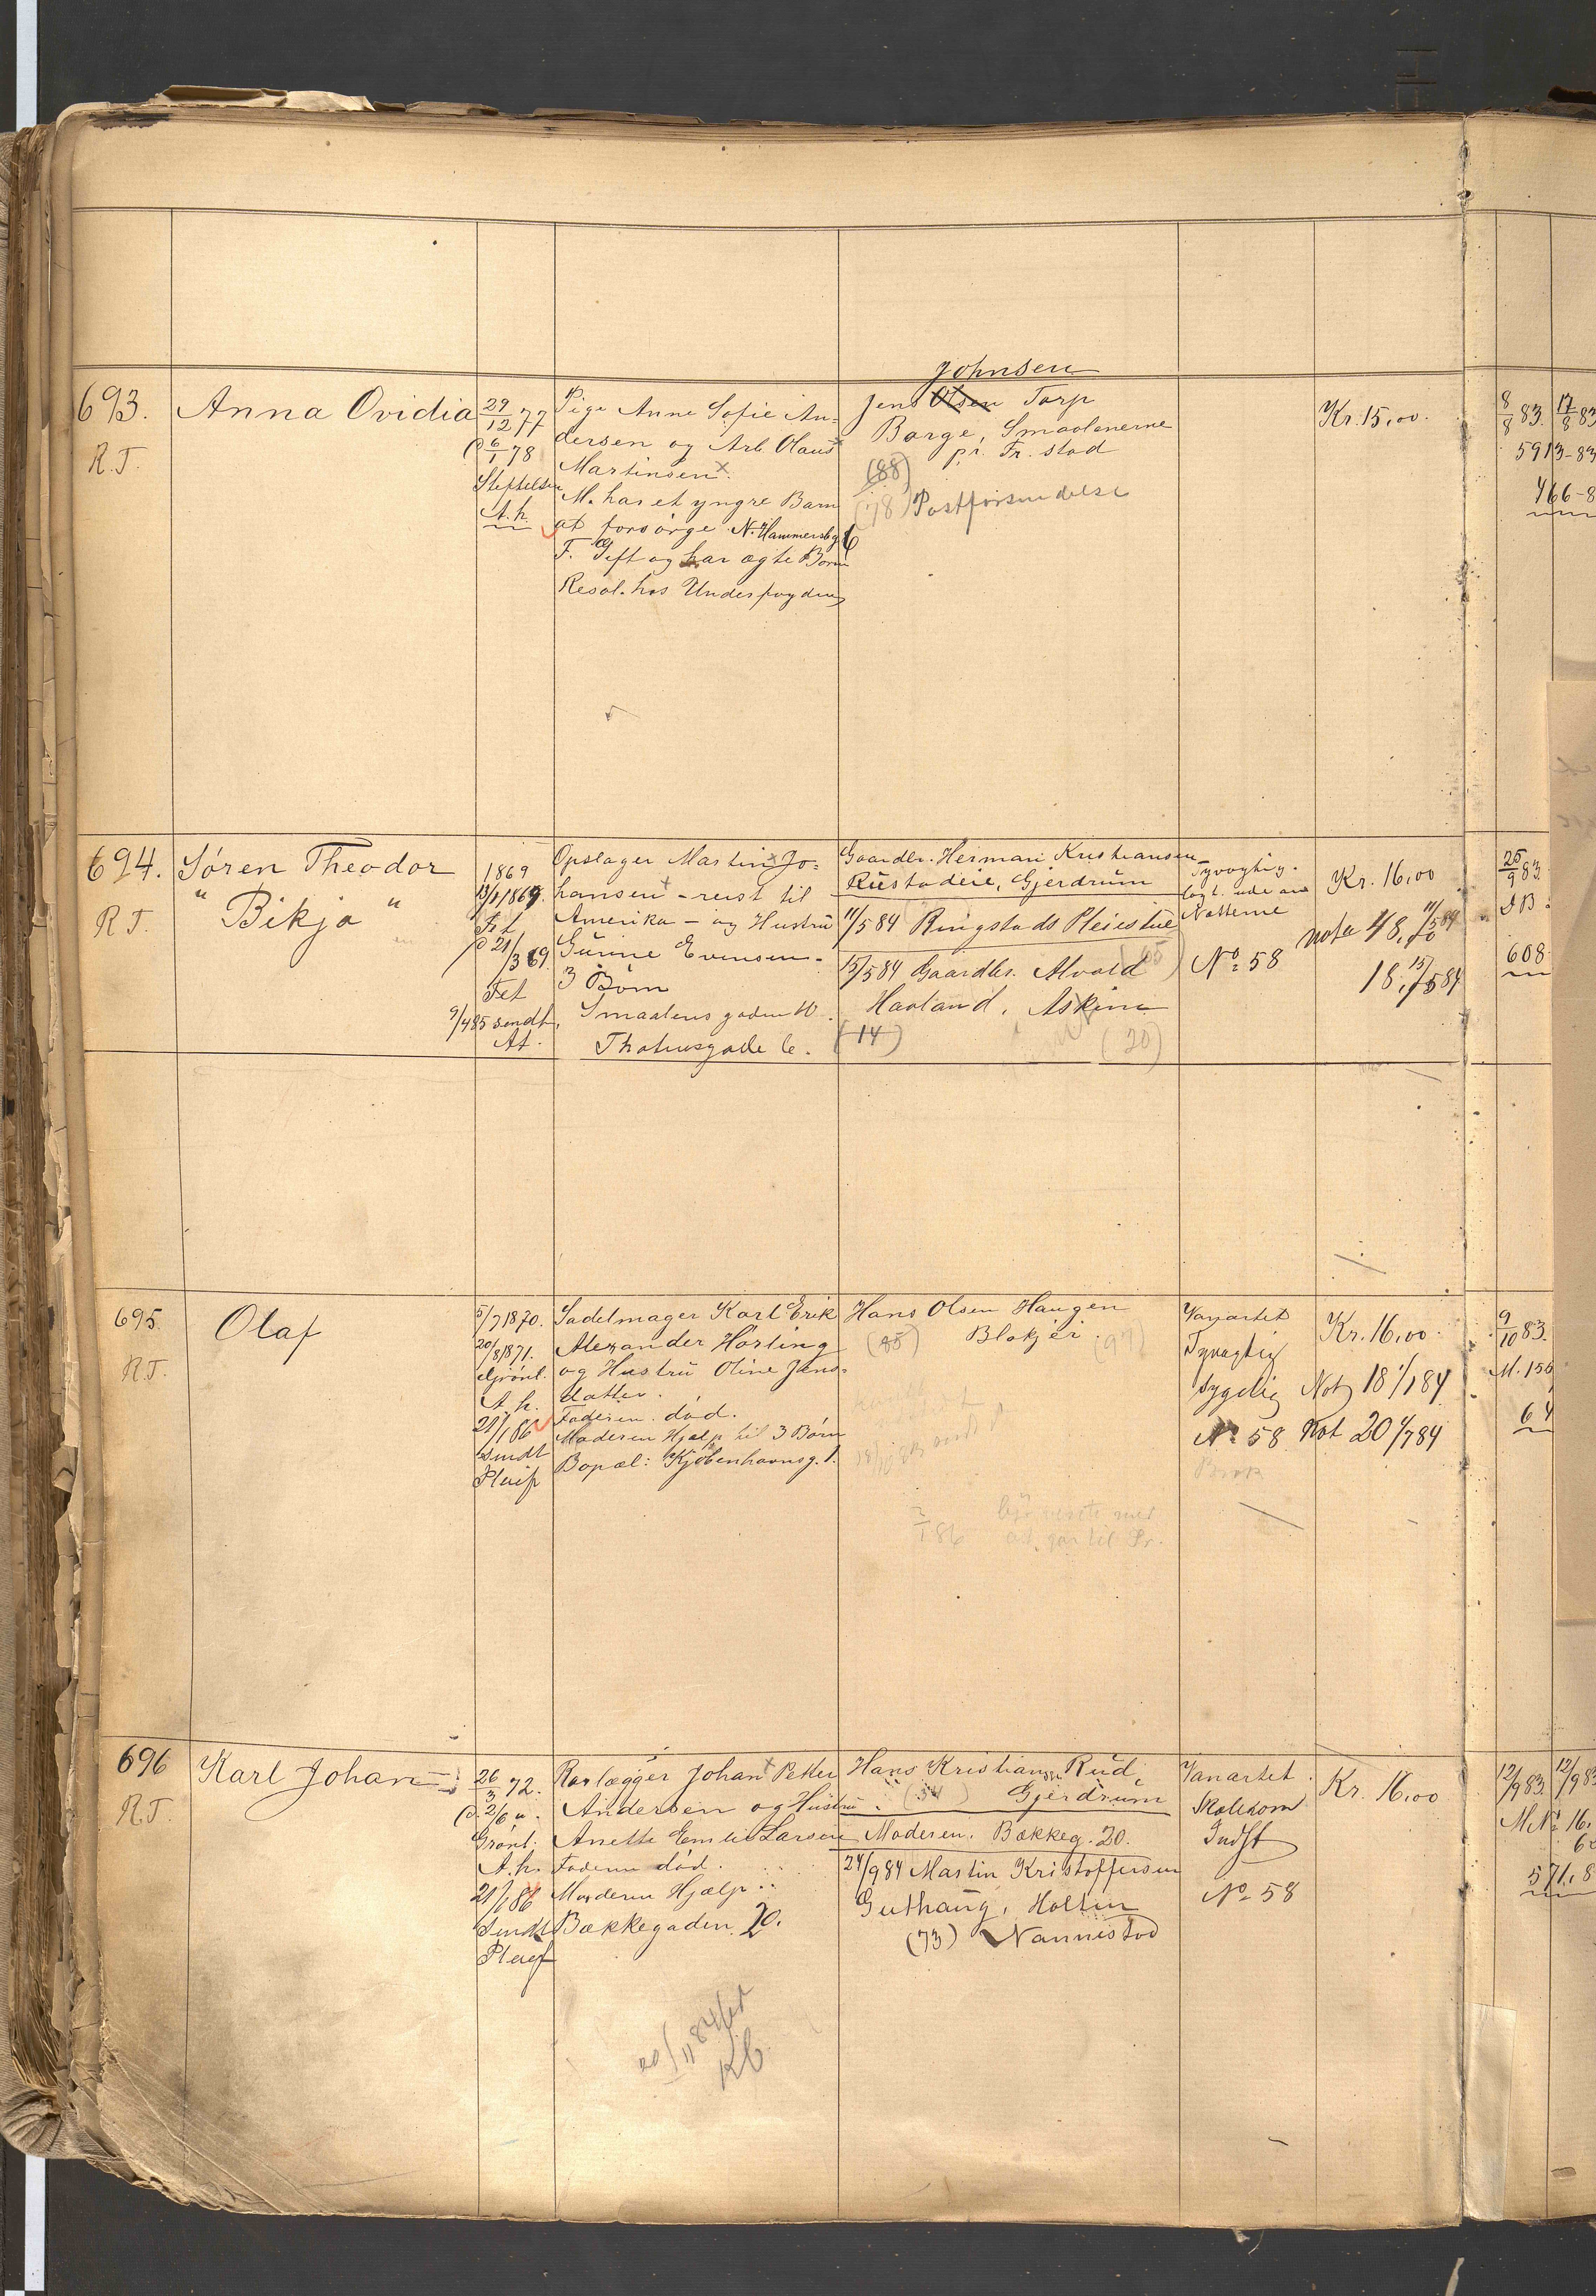 693.
R.T.
Anna Ovidia
29/12 77
6/1 78
Stiftelsen
A.h.
Pige Anne Sofie An-
dersen og Arb. Olaus
Martinsen
M. har et yngre Barn
at forsørge. N. Hammersbg 6
F. Gift og har ægte Børn
Resol. hos Underfogden
Johnsen
Jens Olsen Torp
Borge, Smaalenerne
pr. Fr. stad
(88)
(78) Postforsendelse
Kr. 15,00.
8/8 83. 17/8 83
5913-83
466-8
694.
R.T.
Søren Theodor
"Bikja"
1869
13/1 1869.
Fet
21/3 69.
Fet
9/4 85 sendt
At.
Opslager Martin Jo-
hansen - reist til
Amerika - og Hustru
Gunine Evensen -
3 Børn
Smaalens gaden 40.
Thorhusgade 6.
Gaardbr. Herman Kristiansen
Rustadeie, Gjerdrum
11/5 84 Ringstads Pleiestue
15/5 84 Gaardbr. Alvald
Haoland, Askim
(14)
(20)
Tyvagtig.
lagt. ude om
Nætterne
No 58
Kr. 16,00
Nota 48, 11/5 84
18, 15/5 84
25/9 83
D B.
608
695.
R.T.
Olaf
5/7 1870.
20/8 1871.
Grønl.
A. h.
21/1 86
Sendt
Pleief
Sadelmager Karl Erik
Alexander Hørling
og Hustru Oline Jans-
datter.
Faderen død.
Moderen Hjælp til 3 Børn
Bopæl: Kjøbenhavnsg. 1.
Hans Olsen Haugen
Blakjer.
(85)
(97)
2/1 86
Vanartet
Tyvagtig
Sygelig
No 58
Kr. 16,00.
Not 18 1/1 84
Not 20 4/7 84
9/10 83.
M. 156
64
696
R.T.
Karl Johan
26/3 72.
2/6 "
Grønl.
A. h.
21/1 86
Sendt
Pleief
Rørlægger Johan Petter
Andersen og Hustru
Anette Emilie Larsen
Faderen død.
Moderen Hjælp
Bækkegaden 20.
20/11 84
Hans Kristiansen Rud,
(34) Gjerdrum
Moderen, Bækkeg. 20.
24/9 84 Martin Kristoffersen
Guthaug, Holter
(73) Nannestad
Vanartet.
Skolekom
Indst
No 58
Kr. 16,00
12/9 83. 12/9 83
M No 16.
571.8